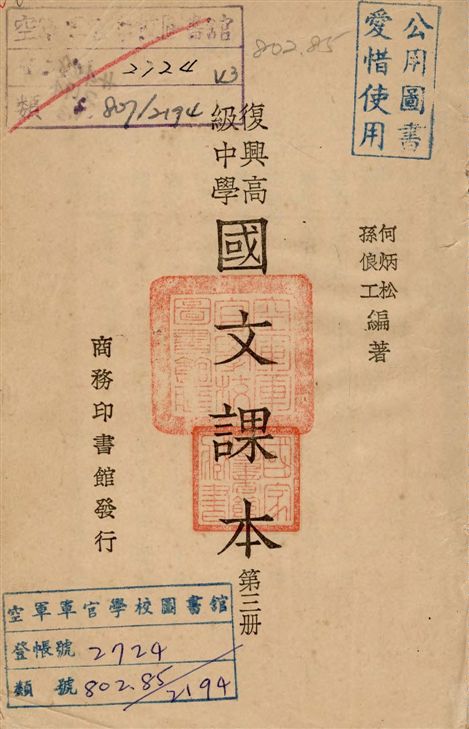 空軍軍官學校圖書館
2724 V3
類 807/2194
802.85
公用圖書
愛惜使用
復興高
級中學
國文課本
第三册
何炳松
孫俍工
編著
商務印書館發行
空軍軍官學校圖書館
登帳號 2724
類號 802.85/2194